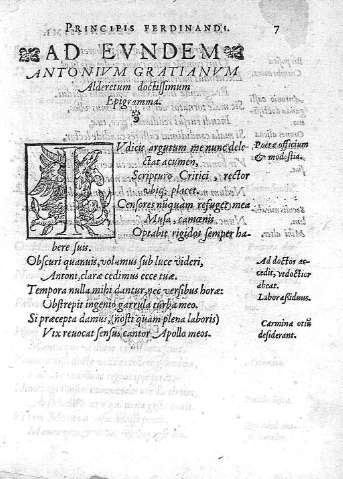 PRINCIPIS FERDINANDI. 7
AD EVNDEM
ANTONIVM GRATIANVM
Alderetum doctissimum
Epigramma.
IVdicis argutum me nunc dele-
ctat acumen,
Scripturo Critici, rector
ubiq; placet.
Censores nūquam refuget mea
Musa, camœnis
Optabit rigidos semper ha-
bere suis.
Obscuri quanuis, volumus sub luce videri,
Antoni, claræ cedimus ecce tuæ.
Tempora nulla mihi dantur, nec versibus horæ:
Obstrepit ingenio garrula turba meo.
Si præcepta damus, (nosti quam plena laboris)
Vix revocat sensus cantor Apollo meos.
Poetæ officium
& modestia.
Ad doctor ac-
cedit, vt doctior
abeat.
Labor assiduus.
Carmina otiū
desiderant.